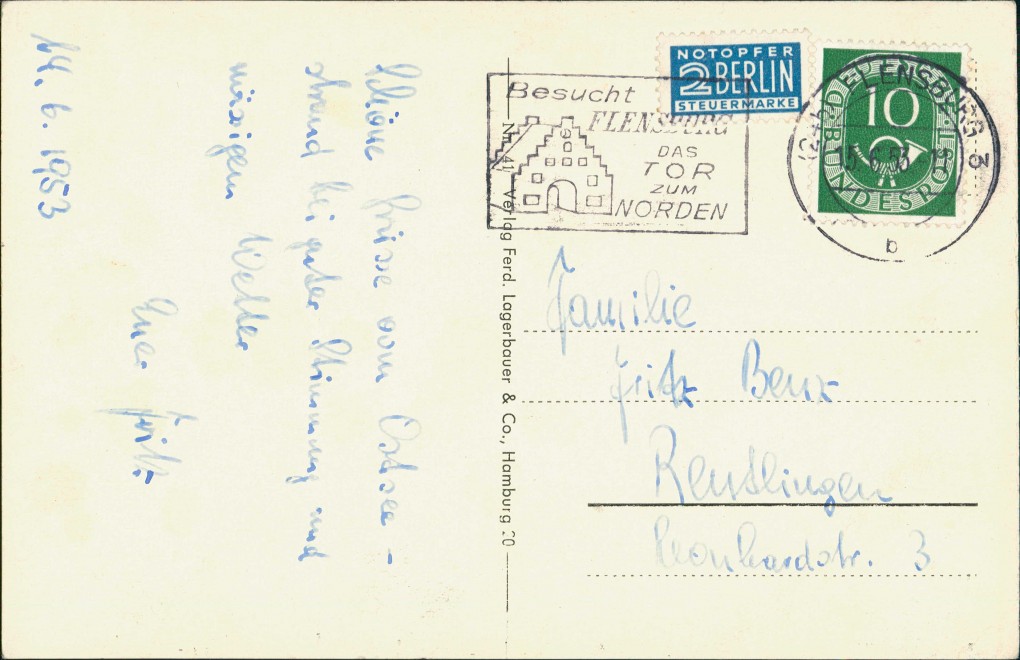 14. 6. 1953
Schöne Grüsse vom Ostsee-
strand bei guter Stimmung und
mässigem Wetter
Euer Fritz
Nr. 41 Verlag Ferd. Lagerbauer & Co., Hamburg 20
Besucht
FLENSBURG
DAS
TOR
ZUM
NORDEN
NOTOPFER
2 BERLIN
STEUERMARKE
DEUTSCHE
10
BUNDESPOST
FLENSBURG 3
15. 6. 53
b
Familie
Fritz Benz
Reutlingen
Leonhardstr. 3